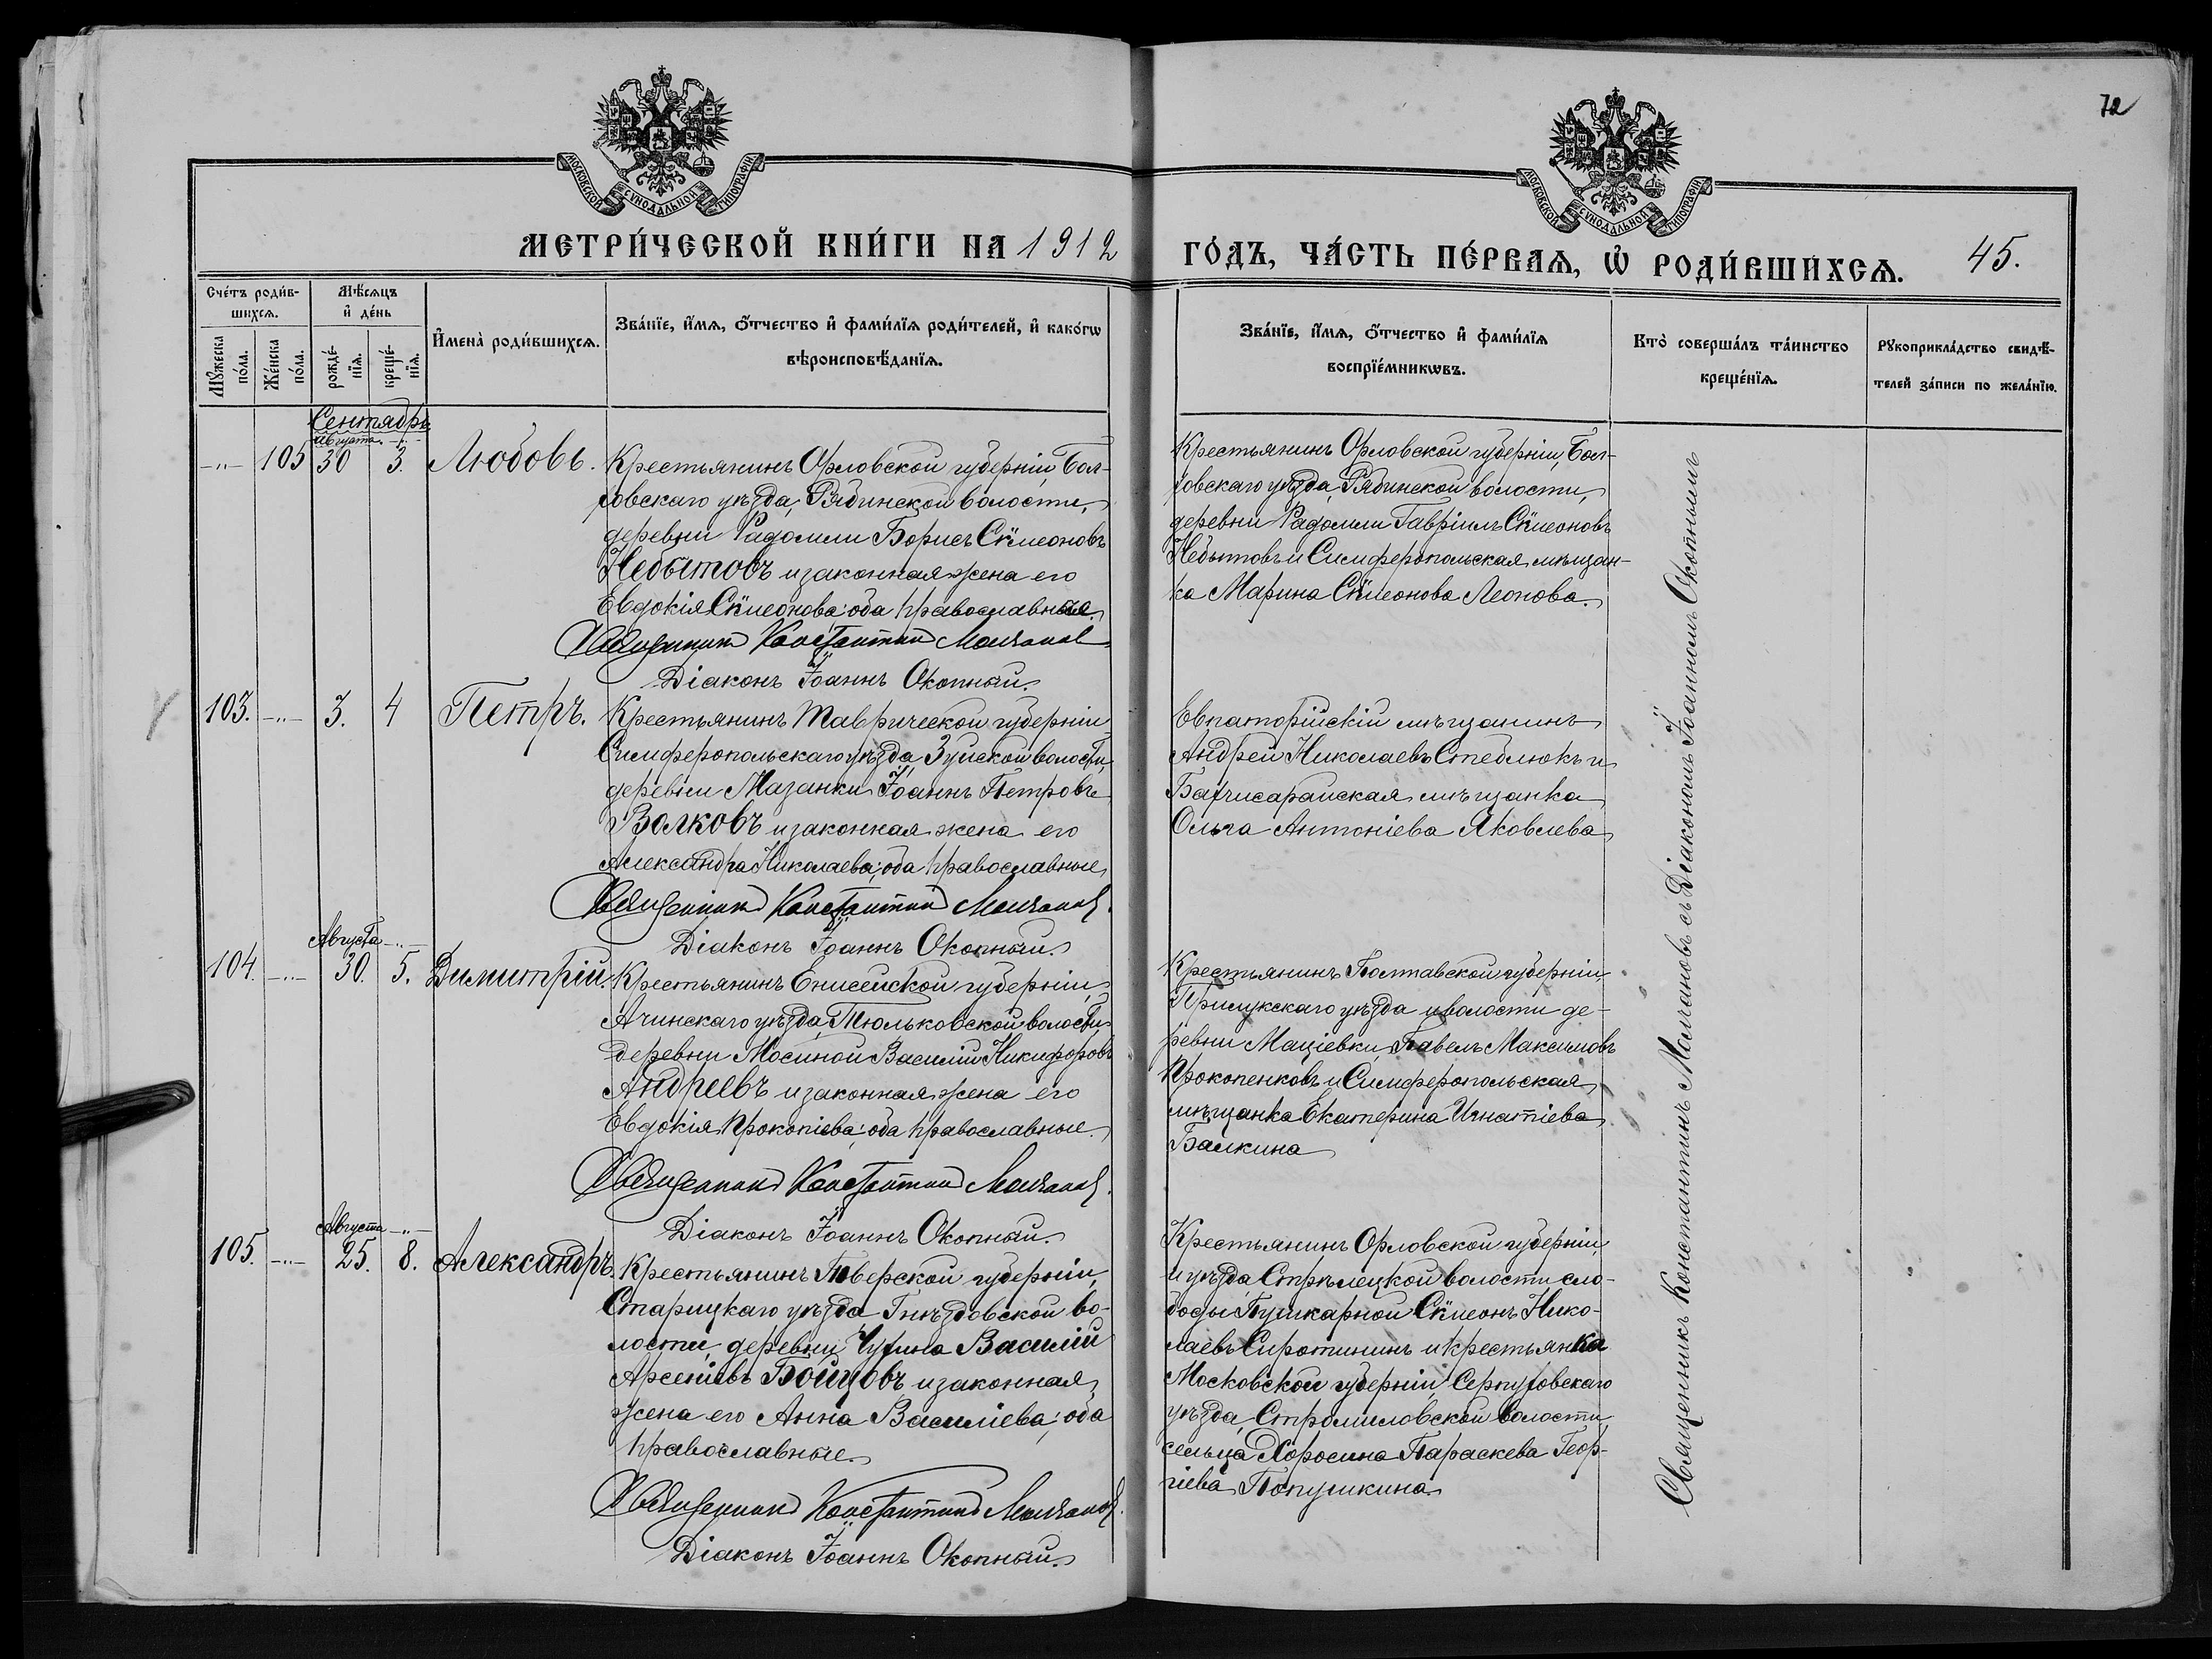 72
МОСКОВСКОЙ СУНОДАЛЬНОЙ ТИПОГРАФІИ
МОСКОВСКОЙ СУНОДАЛЬНОЙ ТИПОГРАФІИ
МЕТРИ́ЧЕСКОЙ КНИ́ГИ НА 1912
ГО́ДЪ, ЧА́СТЬ ПЕ́РВАѦ, Ѡ҆ РОДИ́ВШИХСѦ. 45.
Сче́тъ роди́в-
шихсѧ.
Мꙋ́жеска по́ла.
Же́нска по́ла.
Мѣ́сѧцъ
и҆ де́нь
рожде́-
нїѧ.
креще́-
нїѧ.
И҆мена̀ роди́вшихсѧ.
Зва́нїе, и҆́мѧ, ѻ҆́тчество и҆ фами́лїѧ роди́телей, и҆ како́гѡ
вѣроисповѣ́данїѧ.
Зва́нїе, и҆́мѧ, ѻ҆́тчество и҆ фами́лїѧ
воспрїе́мникѡвъ.
Кто̀ соверша́лъ та́инство
креще́нїѧ.
Рꙋкоприкла́дство свидѣ́-
телей за́писи по жела́нїю.
Сентябрь
Августа -"-
-"- 105 30 3. Любовь.
Крестьянинъ Орловской губерніи, Бол-
ховскаго уѣзда, Рябинской волости,
деревни Радомли Борисъ Сѷмеоновъ
Небытовъ и законная жена его
Евдокія Сѷмеонова; оба православные.
Священникъ Константинъ Молчановъ
Діаконъ Іоаннъ Окопный.
Крестьянинъ Орловской губерніи, Бол-
ховскаго уѣзда, Рябинской волости,
деревни Радомли Гавріилъ Сѷмеоновъ
Небытовъ и Симферопольская мѣщан-
ка Марина Сѷмеонова Леонова.
103. -"- 3. 4 Петръ.
Крестьянинъ Таврической губерніи,
Симферопольскаго уѣзда, Зуйской волости,
деревни Мазанки Іоаннъ Петровъ
Волковъ и законная жена его
Александра Николаева; оба православные.
Священникъ Константинъ Молчановъ.
Діаконъ Іоаннъ Окопный.
Евпаторійскій мѣщанинъ
Андрей Николаевъ Стеблюкъ и
Бахчисарайская мѣщанка
Ольга Антоніева Яковлева
Августа -"-
104. -"- 30. 5. Димитрій.
Крестьянинъ Енисейской губерніи,
Ачинскаго уѣзда, Тюльковской волости,
деревни Мосиной Василій Никифоровъ
Андреевъ и законная жена его
Евдокія Прокопіева; оба православные.
Священникъ Константинъ Молчановъ.
Діаконъ Іоаннъ Окопный.
Крестьянинъ Полтавской губерніи,
Прилукскаго уѣзда и волости де-
ревни Маціевки, Павелъ Максимовъ
Прокопенковъ и Симферопольская
мѣщанка Екатерина Игнатіева
Балкина
Августа -"-
105. -"- 25. 8. Александръ.
Крестьянинъ Тверской губерніи,
Старицкаго уѣзда Гнѣздовской во-
лости, деревни Василій
Арсеніевъ Бойцовъ и законная
жена его Анна Василіева; оба
православные.
Священникъ Константинъ Молчановъ.
Діаконъ Іоаннъ Окопный.
Крестьянинъ Орловской губерніи
и уѣзда, Стрѣлецкой волости сло-
боды Пушкарной Сѷмеонъ Нико-
лаевъ Сиротининъ и крестьянка
Московской губерніи, Серпуховскаго
уѣзда, Стромиловской волости,
сельца Хоросина Параскева Геор-
гіева Попушкина.
Священникъ Константинъ Молчановъ съ Діакономъ Іоанномъ Окопнымъ